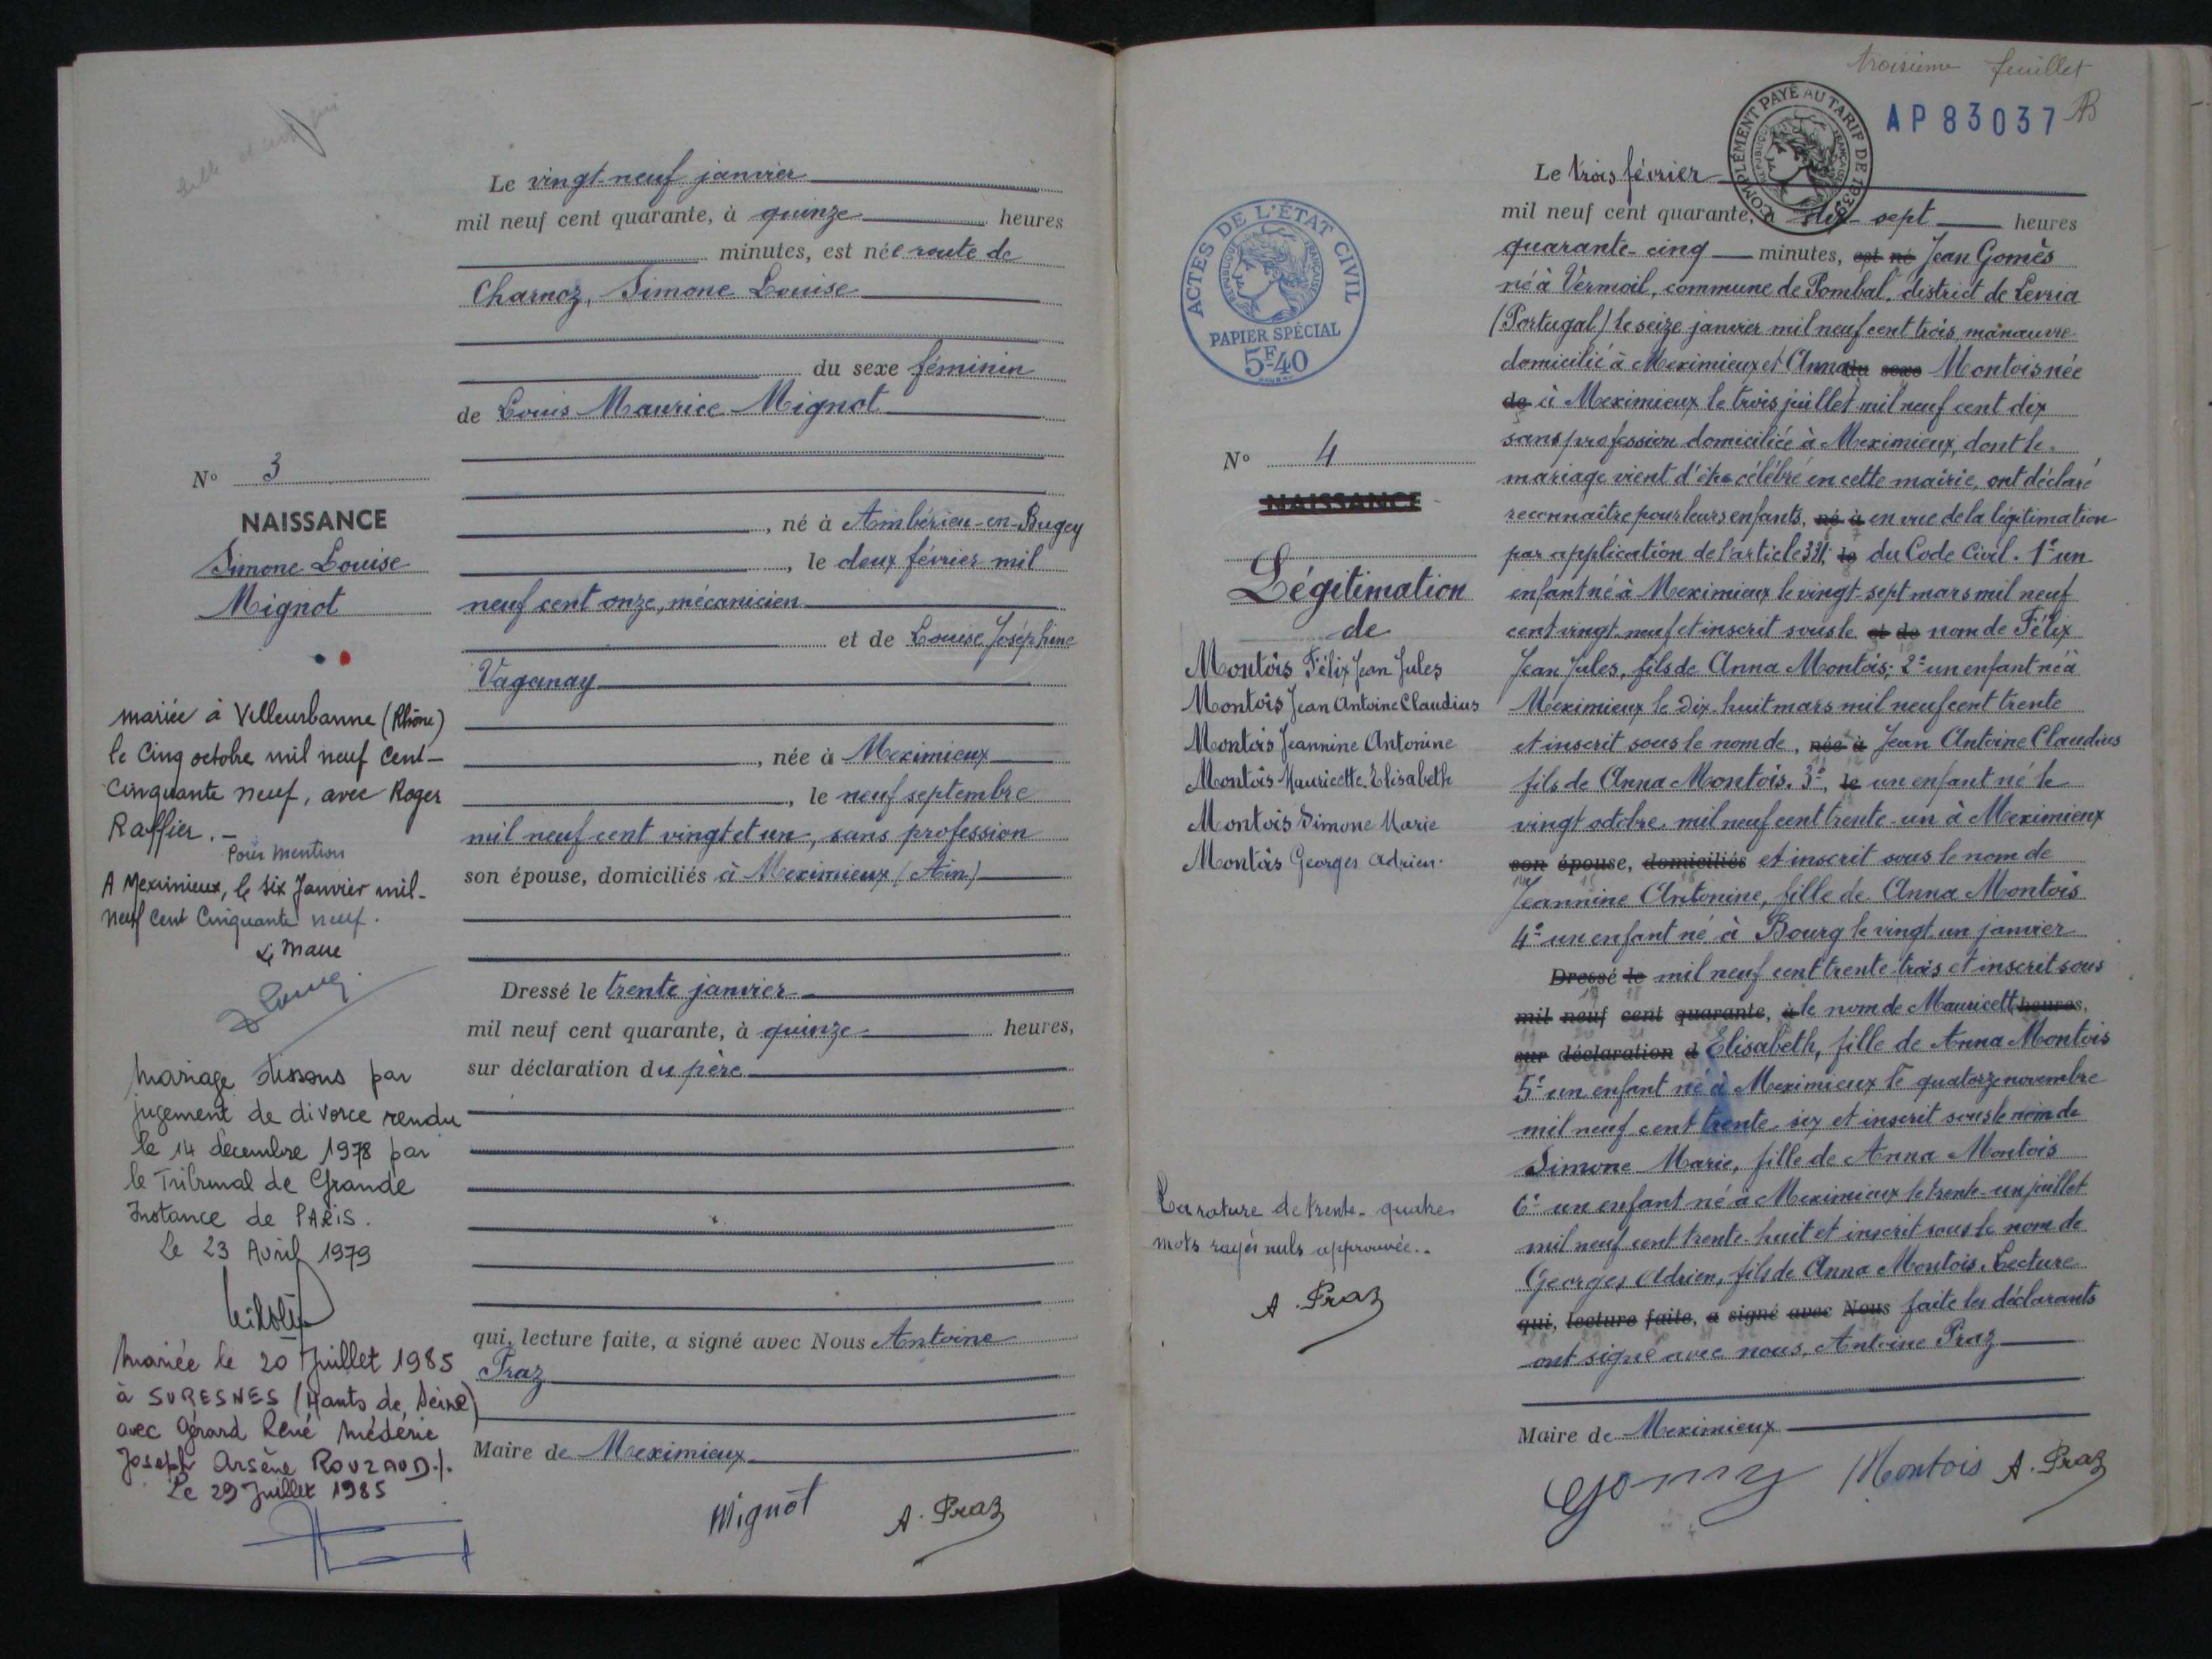 Le vingt-neuf janvier
mil neuf cent quarante, à quinze heures
minutes, est née route de
Charnoz, Simone Louise
du sexe féminin
de Louis Maurice Mignot
, né à Ambérieu-en-Bugey
, le deux février mil
neuf cent onze, mécanicien
et de Louise Joséphine
Vaganay
, née à Meximieux
, le neuf septembre
mil neuf cent vingt et un, sans profession
son épouse, domiciliés à Meximieux (Ain)
Dressé le trente janvier
mil neuf cent quarante, à quinze heures,
sur déclaration du père
qui, lecture faite, a signé avec Nous Antoine
Praz
Maire de Meximieux
Mignot A. Praz
N° 3
NAISSANCE
Simone Louise
Mignot
mariée à Villeurbanne (Rhône)
le Cinq octobre mil neuf Cent-
Cinquante neuf, avec Roger
Raffier. -
Pour mention
A Meximieux, le six Janvier mil-
neuf Cent Cinquante neuf.
Le Maire
Mariage dissous par
jugement de divorce rendu
le 14 décembre 1978 par
le Tribunal de Grande
Instance de PARIS.
Le 23 Avril 1979
Mariée le 20 Juillet 1985
à SURESNES (Hauts de Seine)
avec Gérard René Médéric
Joseph Arsène ROUZAUD./.
Le 29 Juillet 1985
troisième feuillet
AP83037
COMPLÉMENT PAYÉ AU TARIF DE 1939
REPUBLIQUE FRANÇAISE
ACTES DE L'ÉTAT CIVIL
REPUBLIQUE FRANÇAISE
PAPIER SPÉCIAL
5F40
N° 4
NAISSANCE
Légitimation
de
Montois Félix Jean Jules
Montois Jean Antoine Claudius
Montois Jeannine Antonine
Montois Mauricette Elisabeth
Montois Simone Marie
Montois Georges Adrien.
La rature de trente-quatre
mots rayés nuls approuvée..
A. Praz
Le trois février
mil neuf cent quarante, à dix-sept heures
quarante-cinq minutes, est né Jean Gomès
né à Vermoil, commune de Pombal, district de Levria
(Portugal) le seize janvier mil neuf cent trois, manœuvre
domicilié à Meximieux et Anna du sexe Montois née
de à Meximieux le trois juillet mil neuf cent dix
sans profession domiciliée à Meximieux, dont le
mariage vient d'être célébré en cette mairie, ont déclaré
reconnaître pour leurs enfants, né à en vue de la légitimation
par application de l'article 331, le du Code Civil. 1° un
enfant né à Meximieux le vingt-sept mars mil neuf
cent vingt-neuf et inscrit sous le et de nom de Félix
Jean Jules, fils de Anna Montois; 2° un enfant né à
Meximieux le dix-huit mars mil neuf cent trente
et inscrit sous le nom de, née à Jean Antoine Claudius
fils de Anna Montois. 3°, le un enfant né le
vingt octobre mil neuf cent trente-un à Meximieux
son épouse, domiciliés et inscrit sous le nom de
Jeannine Antonine, fille de Anna Montois
4° un enfant né à Bourg le vingt-un janvier
Dressé le mil neuf cent trente-trois et inscrit sous
mil neuf cent quarante, à le nom de Mauricett heures,
sur déclaration d Elisabeth, fille de Anna Montois
5° un enfant né à Meximieux le quatorze novembre
mil neuf cent trente-six et inscrit sous le nom de
Simone Marie, fille de Anna Montois
6° un enfant né à Meximieux le trente-un juillet
mil neuf cent trente-huit et inscrit sous le nom de
Georges Adrien, fils de Anna Montois. Lecture
qui, lecture faite, a signé avec Nous faite les déclarants
ont signé avec nous, Antoine Praz
Maire de Meximieux
Montois A. Praz